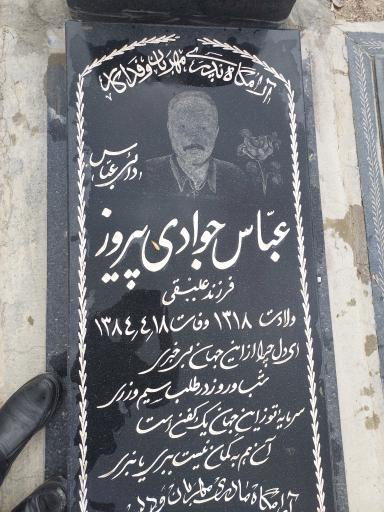 آرامگاه پدری مهربان و فداکار
(دائی عباس)
عباس جوادی پیروز
فرزند علینقی
ولادت ۱۳۱۸ وفات ۱۳۸۴٫۴٫۱۸
ای دل چرا از این جهان بی خبری
شب و روز در طلب سیم و زری
سرمایه تو از این جهان یک کفن است
آن هم به گمان نیست ببری یا نبری
آرامگاه مادری مهربان و